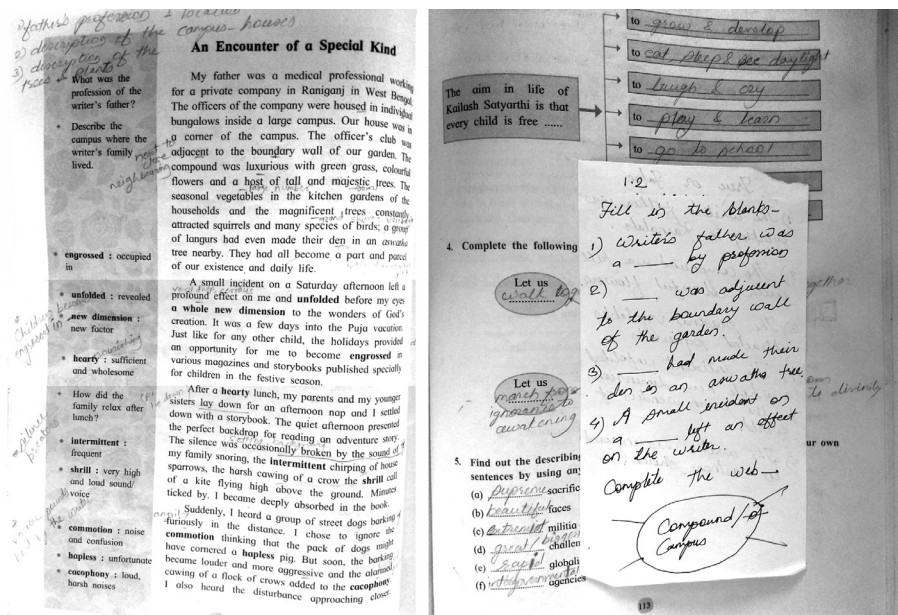 2) description of the campus houses
3) description of the
trees & plants
An Encounter of a Special Kind
What was the
profession of the
writer's father?
Describe the
campus where the
writer's family
lived.
engrossed : occupied
in
unfolded : revealed
new dimension :
new factor
hearty : sufficient
and wholesome
How did the
family relax after
lunch?
intermittent :
frequent
shrill : very high
and loud sound/
voice
commotion : noise
and confusion
hapless : unfortunate
cacophony : loud,
harsh noises
My father was a medical professional working
for a private company in Raniganj in West Bengal.
The officers of the company were housed in individual
bungalows inside a large campus. Our house was in
a corner of the campus. The officer's club was
adjacent to the boundary wall of our garden. The
compound was luxurious with green grass, colourful
flowers and a host of tall and majestic trees. The
seasonal vegetables in the kitchen gardens of the
households and the magnificent trees constantly
attracted squirrels and many species of birds; a group
of langurs had even made their den in an aswatha
tree nearby. They had all become a part and parcel
of our existence and daily life.
A small incident on a Saturday afternoon left a
profound effect on me and unfolded before my eyes
a whole new dimension to the wonders of God's
creation. It was a few days into the Puja vacation.
Just like for any other child, the holidays provided
an opportunity for me to become engrossed in
various magazines and storybooks published specially
for children in the festive season.
After a hearty lunch, my parents and my younger
sisters lay down for an afternoon nap and I settled
down with a storybook. The quiet afternoon presented
the perfect backdrop for reading an adventure story.
The silence was occasionally broken by the sound of
my family snoring, the intermittent chirping of house
sparrows, the harsh cawing of a crow the shrill call
of a kite flying high above the ground. Minutes
ticked by. I became deeply absorbed in the book.
Suddenly, I heard a group of street dogs barking
furiously in the distance. I chose to ignore the
commotion thinking that the pack of dogs might
have cornered a hapless pig. But soon, the barking
became louder and more aggressive and the alarmed
cawing of a flock of crows added to the cacophony.
I also heard the disturbance approaching closer.
The aim in life of
Kailash Satyarthi is that
every child is free ......
to grow & develop
to eat, sleep & see daylight
to laugh & cry
to play & learn
to go to school
4. Complete the following
Let us
walk tog
Let us
march from
ignorance to
awakening
together
to divinity
ur own
5. Find out the describing
sentences by using any
(a) supreme sacrific
(b) beautiful faces
(c) extremist militia
(d) great/biggest challen
(e) rapid globali
(f) intergovernmental agencies
113
1.2
Fill in the blanks-
1) Writer's father was
a ____ by profession
2) ____ was adjacent
to the boundary wall
of the garden.
3) ____ had made their
den in an aswatha tree
4) A small incident on
a ____ left an effect
on the writer.
Complete the web—
Compound/
Campus